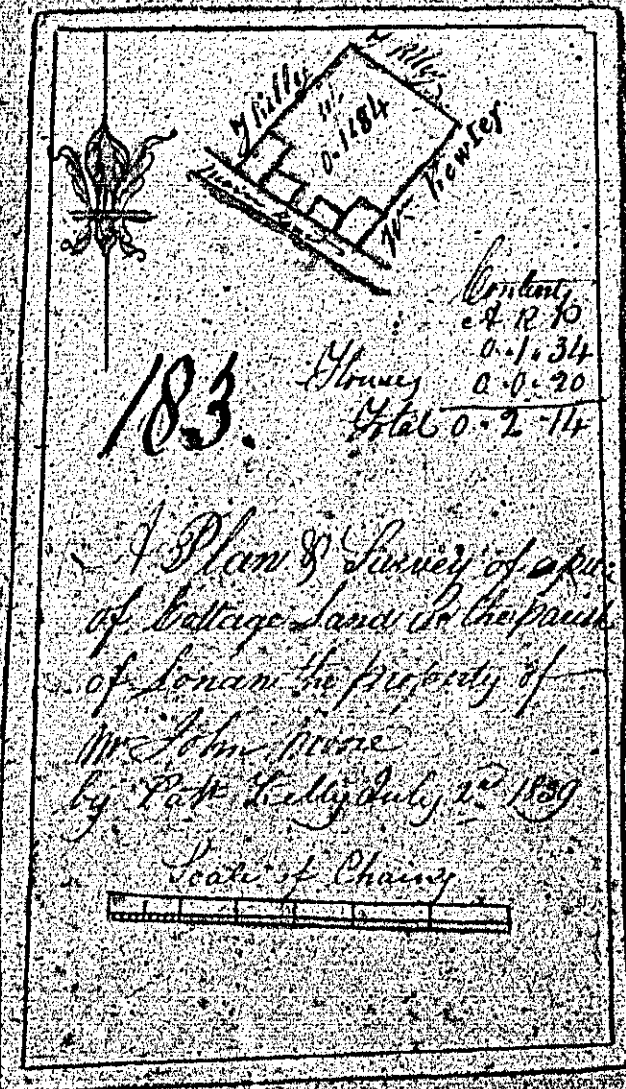 J Killey
J Killey
Wm Kewley
Contents
A R P
0.1.34
Houses 0.0.20
Total 0.2.14
183.
A Plan & Survey of a
of Cottage Land in the parish
of Lonan the property of
Mr John
by Patk Kelly July 2nd 1839
Scale of Chains